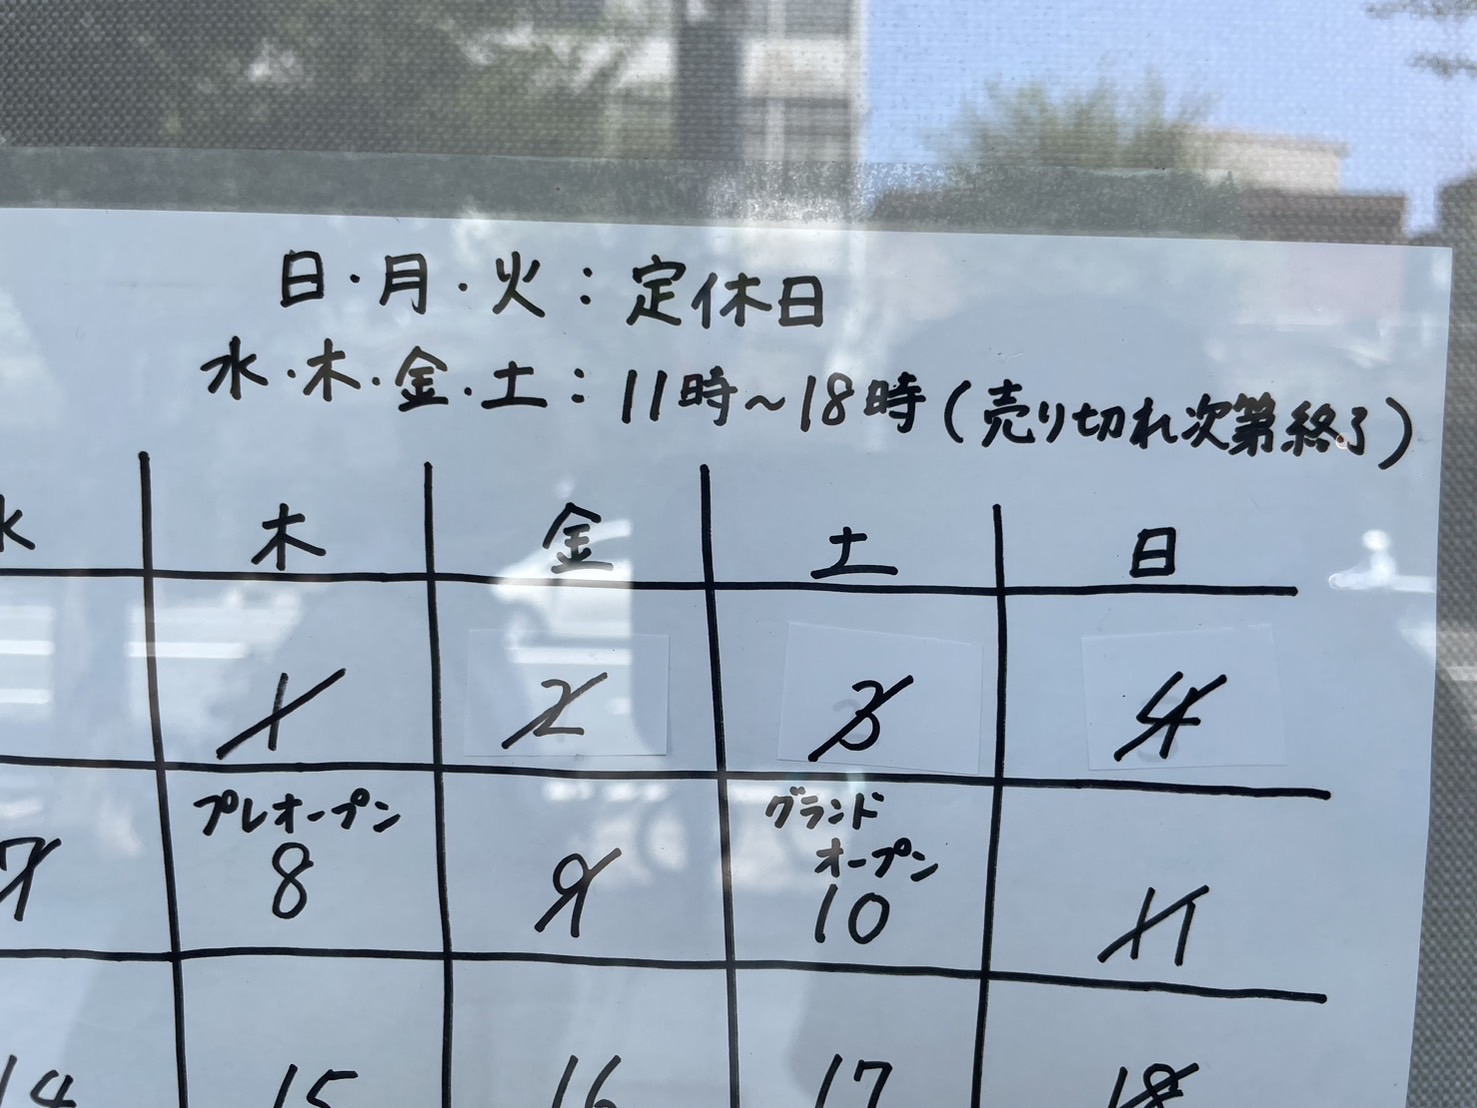 日・月・火：定休日
水・木・金・土：11時～18時（売り切れ次第終了）
水 木 金 土 日
1 2 3 4
プレオープン グランド
オープン
7 8 9 10 11
14 15 16 17 18